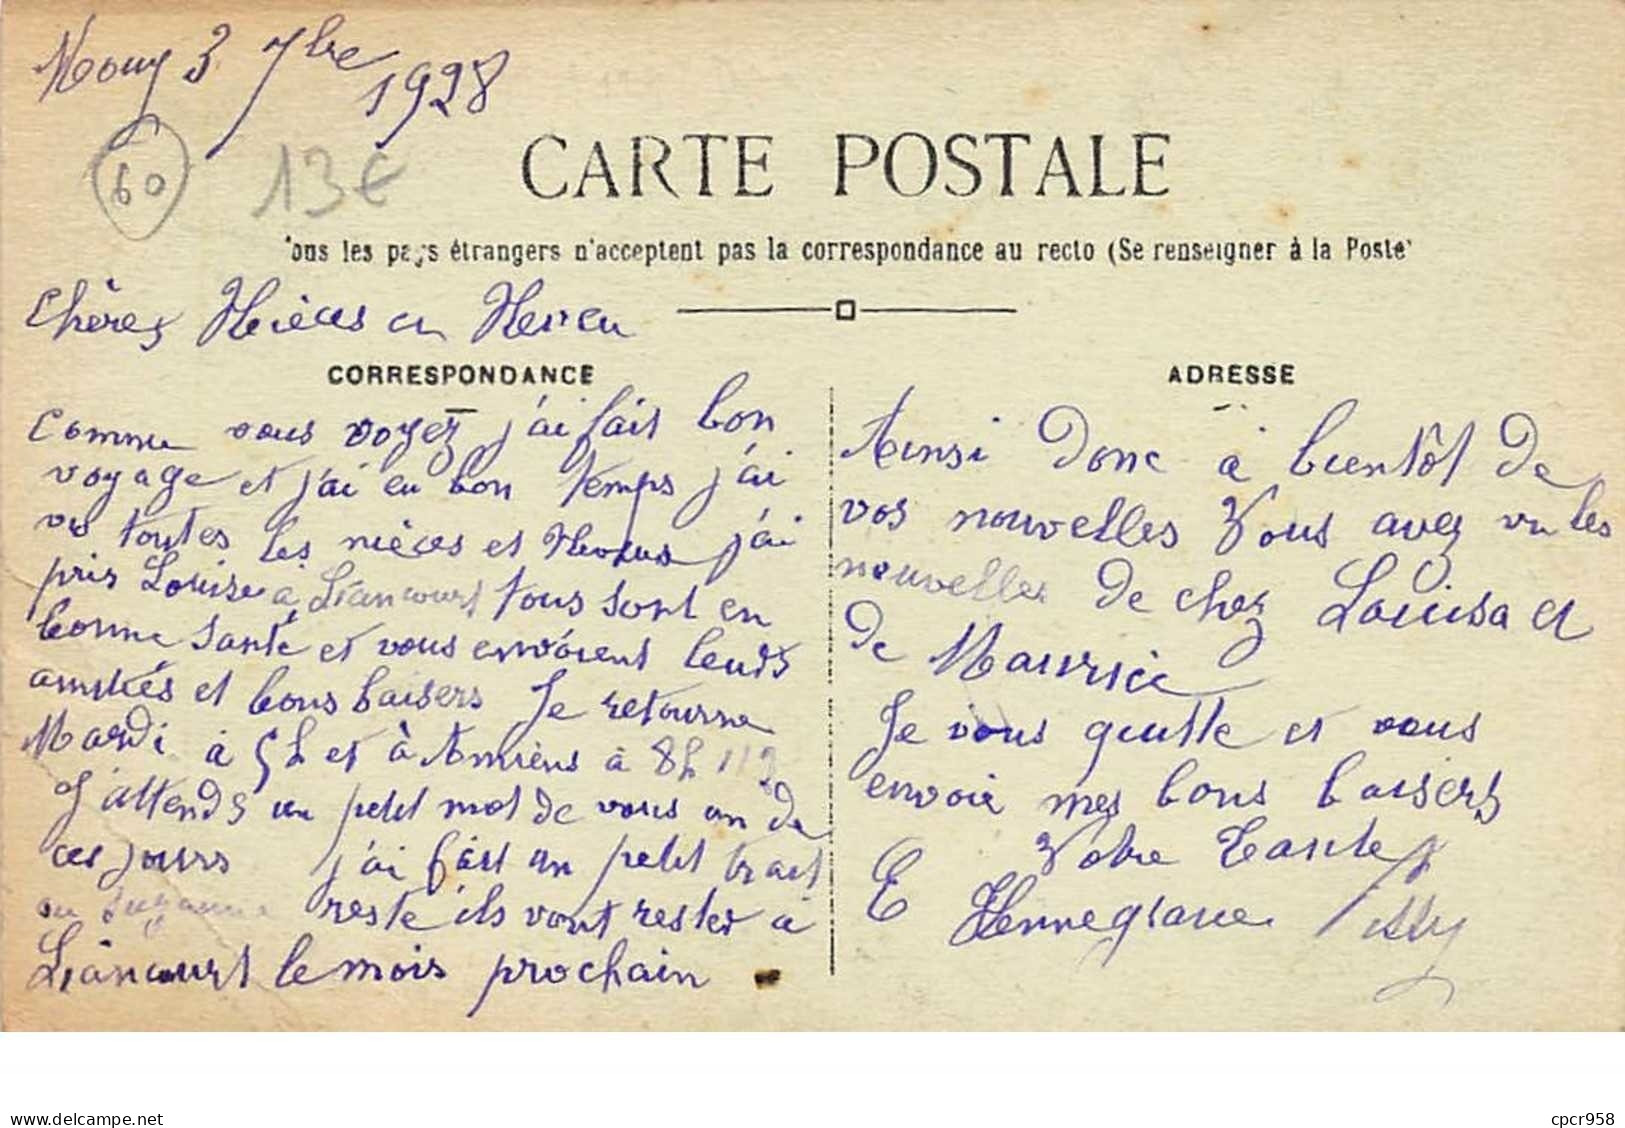 Mouy 3 7bre
1928
60
13€
CARTE POSTALE
ous les pays étrangers n'acceptent pas la correspondance au recto (Se renseigner à la Poste
Chères Nièces et Neveu
CORRESPONDANCE
comme vous voyez j'ai fait bon
voyage et j'ai eu bon temps j'ai
vu toutes les nièces et Neveus j'ai
pris Louise à Liancourt tous sont en
bonne santé et vous envoient leurs
amitiés et bons baisers Je retourne
Mardi à 5h et à Amiens à 8h 1/2
J'attends un petit mot de vous un de
ces jours j'ai fait un petit
reste ils vont rester à
Liancourt le mois prochain
ADRESSE
Ainsi Donc à bientôt de
vos nouvelles Vous avez vu les
nouvelles de chez Louisa et
de Maurice
Je vous quitte et vous
envoie mes bons baisers
Votre Tante
E
www.delcampe.net
cpcr958